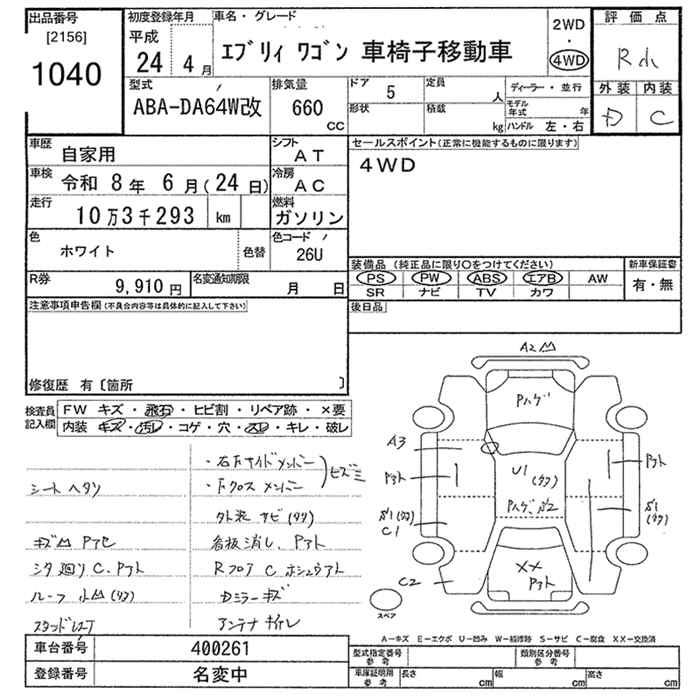 出品番号
[2156]
1040
初度登録年月
平成
24年 4月
車名・グレード
エブリィ ワゴン 車椅子移動車
2WD
・
4WD
評価点
R 小
外装 内装
D C
型式
ABA-DA64W改
排気量
660
CC
ドア 5
形状
定員 人
積載 kg
ディーラー・並行
モデル年式 年
ハンドル 左・右
車歴
自家用
シフト
AT
車検
令和 8年 6月(24日)
冷房
AC
走行
10万3千293 km
燃料
ガソリン
色
ホワイト
色替
色コード
26U
R券
9,910円
名変通知期限
月 日
セールスポイント(正常に機能するものに限ります)
4WD
装備品 (純正品に限り○をつけてください)
PS PW ABS エアB AW
SR ナビ TV カワ
新車保証書
有・無
後日品
注意事項申告欄(不良合内容等は具体的に記入して下さい)
修復歴 有〔箇所 〕
検査員記入欄
FW キズ・飛石・ヒビ割・リペア跡・×要
内装 キズ・汚レ・コゲ・穴・スレ・キレ・破レ
・右Fサイドメンバー
・Fクロスメンバー
シート ヘタリ
外装 サビ(タタ)
看板消し、Pアト
シタ廻りC、Pアト
RフロアC
Dミラーキズ
アンテナ
A2
Pハゲ
A3
Pアト
U1
Pハゲ
Pアト
C1
C2
XX
Pアト
スペア
A－キズ E－エクボ U－凹み W－補修跡 S－サビ C－腐食 XX－交換済
車台番号 400261
登録番号 名変中
型式指定番号
参考
類別区分番号
参考
車庫証明用
参考
長さ cm
幅 cm
高さ cm